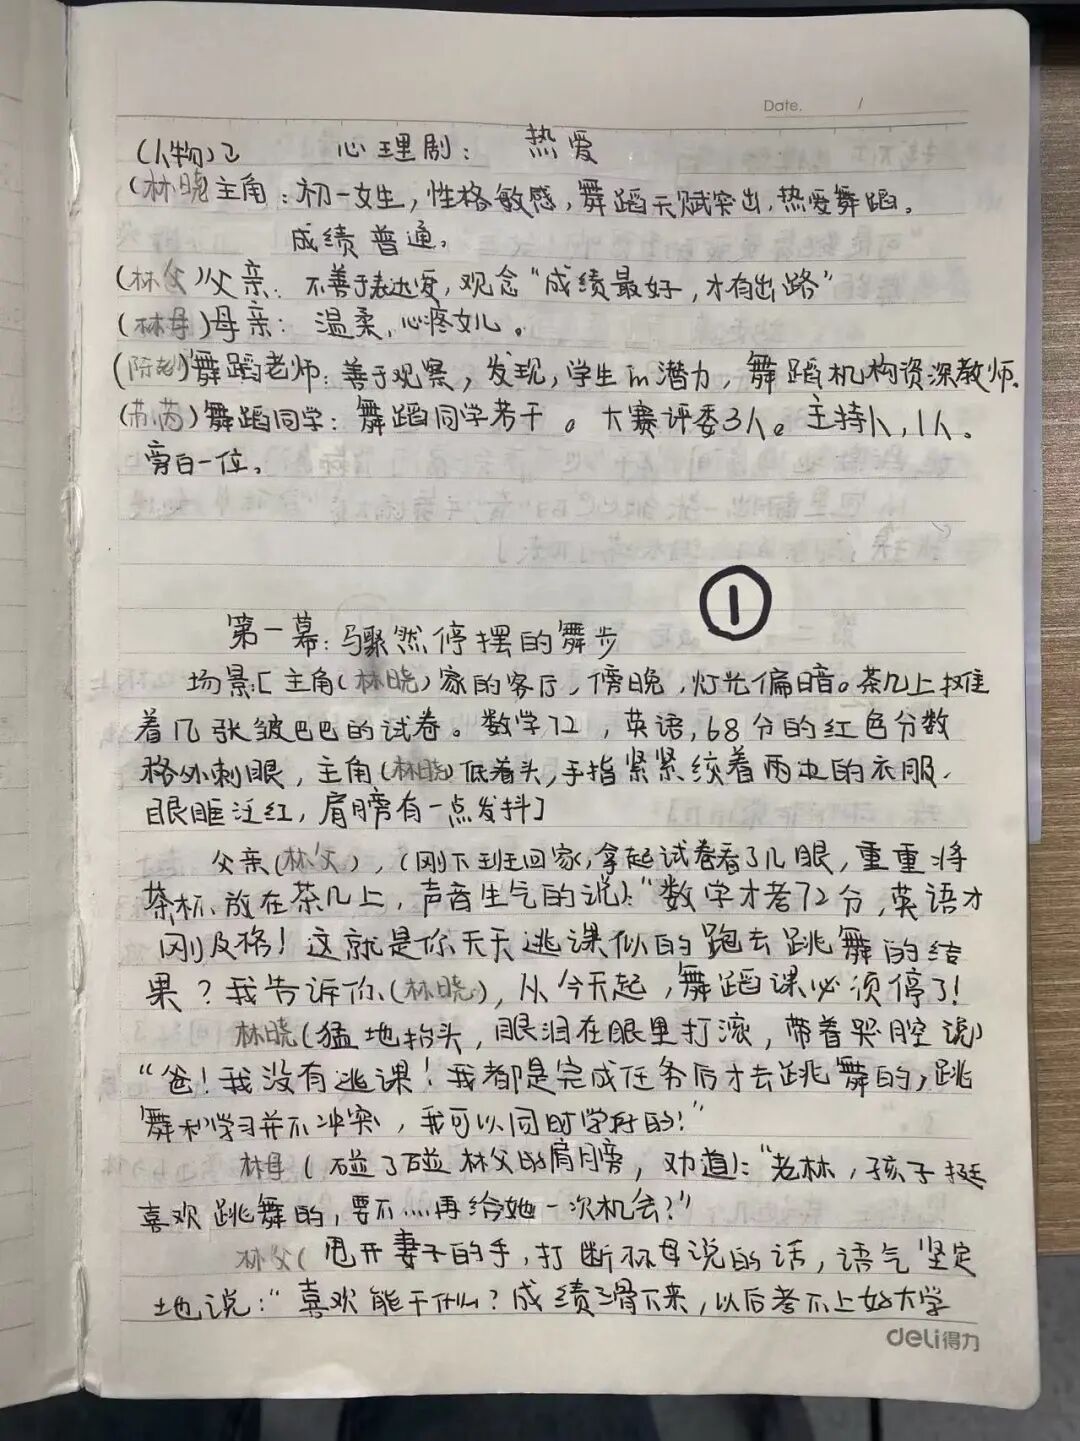 Date. /
(人物)
心理剧： 热爱
(林晓主角：初一女生，性格敏感，舞蹈天赋突出，热爱舞蹈。
成绩普通。
(林父)父亲：不善于表达爱，观念“成绩最好，才有出路”
(林母)母亲：温柔，心疼女儿。
(陈老师)舞蹈老师：善于观察，发现，学生in潜力，舞蹈机构资深教师。
舞蹈同学：舞蹈同学若干。大赛评委3人。主持人，1人。
旁白一位。
①
第一幕：骤然停摆的舞步
场景[主角(林晓)家的客厅，傍晚，灯光偏暗。茶几上摊
着几张皱巴巴的试卷。数学72，英语，68分的红色分数
格外刺眼，主角(林晓)低着头，手指紧紧绞着两边的衣服，
眼眶泛红，肩膀有一点发抖]
父亲(林父)，(刚下班回家，拿起试卷看了几眼，重重将
茶杯放在茶几上，声音生气的说)：“数学才考72分，英语才
刚及格！这就是你天天逃课似的跑去跳舞的结
果？我告诉你(林晓)，从今天起，舞蹈课必须停了！
林晓(猛地抬头，眼泪在眼里打滚，带着哭腔说)
“爸！我没有逃课！我都是完成任务后才去跳舞的，跳
舞和学习并不冲突，我可以同时学好的！”
林母(碰了碰林父的肩膀，劝道)：“老林，孩子挺
喜欢跳舞的，要不然再给她一次机会？”
林父(甩开妻子的手，打断林母说的话，语气坚定
地说：“喜欢能干什么？成绩滑下来，以后考不上好大学
deli得力